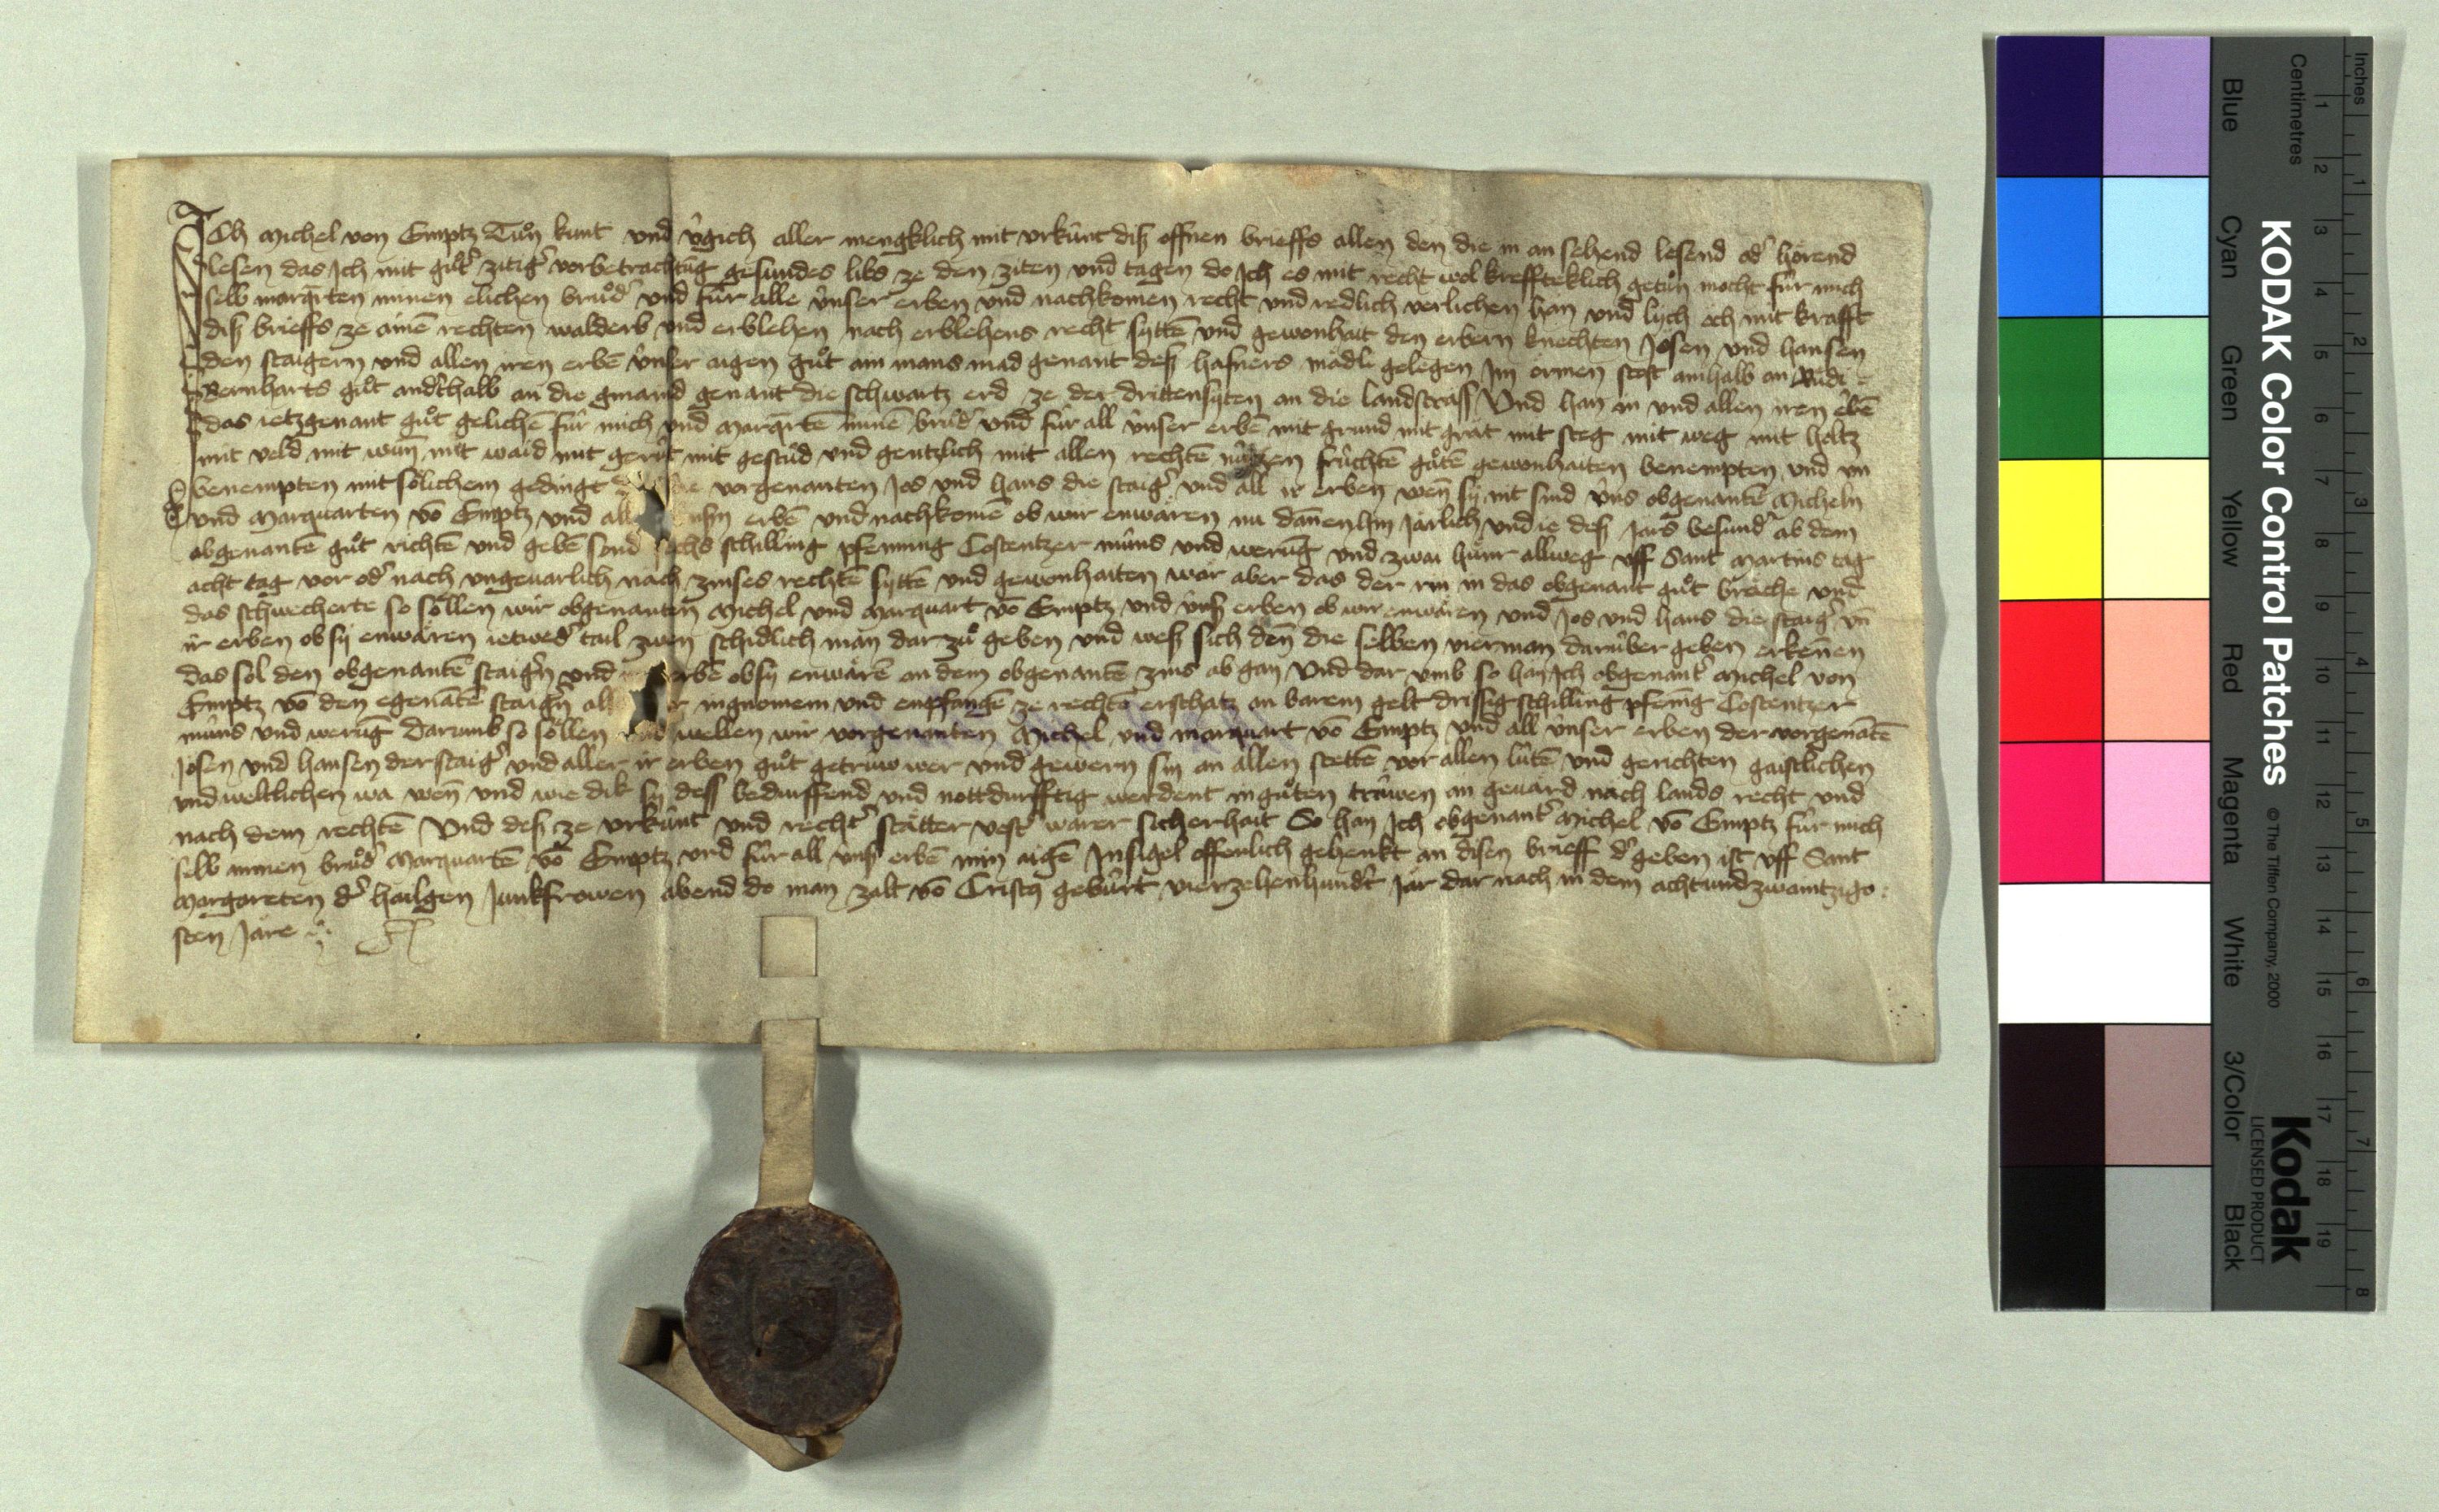 ICh Michel von Emptz Tůn kunt und v̂gich aller mengklich mit urkúnt diß offnen brieffs allen den die in an sehend lesend od' hörend
lesen das Ich mit gůt' zitig' vorbetrachtūg gesundes libs ze den ziten und tagen do Ich es mit recht wol kreffteklich getůn mocht fúr mich
selb marq̄rten minen elichen brůd' und fúr alle únser erben und nachkomen recht und redlich verlichen han und lych óch mit krafft
diß brieffs ze ainē rechten walderb und erblehen nach erblehens recht syttē und gewonhait den erbern knechten Josen und hansen
den staigern und allen iren erbē únser aigen gůt ain mans mad genant deß hafners mädli gelegen Im ermen stost ainhalb an Růdi
Bernharts gůt andrthalb an die gmaind genant die schwartz erd ze der drittensyten an die landstrass Und han in und allen iren ērbē
das ietzgenant gůt gelichē fúr mich und marq̄rtē minē brůd' und fúr all únser erbē mit grund mit grät mit steg mit weg mit holtz
mit veld mit wun̄ mit waid mit gerút mit gestúd und gentzlich mit allen rechtē nútzen frúchtē gůtē gewonhaiten benempten und un
benempten mit sölichem gedingt die vorgenanten Jos und hans die staig' und all ir erben wen̄ sy nit sind úns obgenantē Micheln
und Marquarten vō Emptz und all únsn̄ erbē und nachkomē ob wir enwären nu dannenhin Järlich und ie deß Jars besund' ab dem
obgenantē gůt richtē und gebē sond sechs schilling pfenning Costentzer múns und werūg und zwai húnr allweg uff Sant Martins tag
acht tag vor od' nach ungeuarlich nach zinses rechtē syttē und gewonhaiten wär aber das der rin in das obgenant gůt bräche und
das schwecherte so söllen wir obgenanten Michel und Marquart vō Emptz und únß erben ob wir enwären und Jos und hans die staig' un̄
ir erben ob sy enwären ietwed' tail zwen schidlich man dar zů geben und weß sich den̄ die selben vierman darúber geben erkennen
das sol den obgenantē staign̄ und erbē ob sy enwärē an dem obgenantē zins ab gan Und dar umb so han Ich obgenant' Michel von
Emptz vō den egenātē staign̄ all ingnomem und enpfangē ze rechtē erschatz an barem gelt drissig schilling pfenīg Costentzer
múns und werūg Darumb so söllen und wellen wir vorgenanten Michel und marquart vō Emptz und all únser erben der vorgenātē
Josen und hansen der staig' und aller ir erben gůt getrúw wer und gewern sin an allen stettē vor allen lútē und gerichten gaistlichen
und weltlichen wa wen̄ und wie dik sy dess bedurffend und nottdurfftig werdent in gůten trúwen an geuärd nach lands recht und
nach dem rechtē Und deß ze urkúnt und recht' stätter vest' warer sicherhait So han Ich obgenant' Michel vō Emptz fúr mich
selb minen brůd' Marquartē vō Emptz und fúr all únß erbē min aigē Insigel offenlich gehenkt an disen brieff d' geben ist uff Sant
Margareten d' hailgen Junkfrowen abend do man zalt vō Cristz gebúrt vierzehenhundr̄t Jar dar nach in dem achtundzwaintzigo-
sten Järe
KODAK Color Control Patches © The Tiffen Company, 2000
Kodak
LICENSED PRODUCT
Inches 1 2 3 4 5 6 7 8
Centimetres 1 2 3 4 5 6 7 8 9 10 11 12 13 14 15 16 17 18 19
Blue Cyan Green Yellow Red Magenta White 3/Color Black